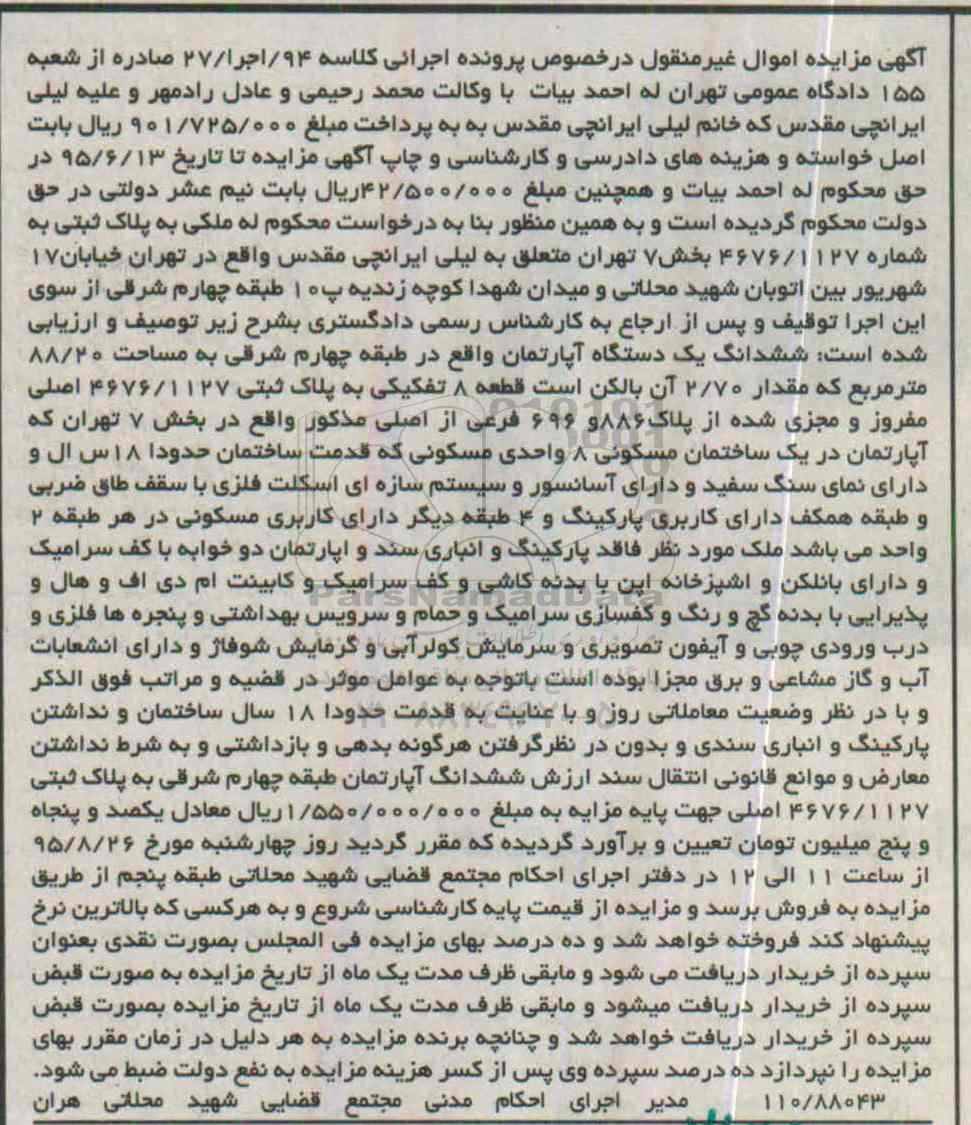 آگهی مزایده اموال غیرمنقول درخصوص پرونده اجرائی کلاسه ۹۴/اجرا/۲۷ صادره از شعبه
۱۵۵ دادگاه عمومی تهران له احمد بیات با وکالت محمد رحیمی و عادل رادمهر و علیه لیلی
ایرانچی مقدس که خانم لیلی ایرانچی مقدس به به پرداخت مبلغ ۹۰۱/۷۲۵/۰۰۰ ریال بابت
اصل خواسته و هزینه های دادرسی و کارشناسی و چاپ آگهی مزایده تا تاریخ ۹۵/۶/۱۳ در
حق محکوم له احمد بیات و همچنین مبلغ ۴۲/۵۰۰/۰۰۰ریال بابت نیم عشر دولتی در حق
دولت محکوم گردیده است و به همین منظور بنا به درخواست محکوم له ملکی به پلاک ثبتی به
شماره ۴۶۷۶/۱۱۲۷ بخش۷ تهران متعلق به لیلی ایرانچی مقدس واقع در تهران خیابان۱۷
شهریور بین اتوبان شهید محلاتی و میدان شهدا کوچه زندیه پ۱۰ طبقه چهارم شرقی از سوی
این اجرا توقیف و پس از ارجاع به کارشناس رسمی دادگستری بشرح زیر توصیف و ارزیابی
شده است: ششدانگ یک دستگاه آپارتمان واقع در طبقه چهارم شرقی به مساحت ۸۸/۲۰
مترمربع که مقدار ۲/۷۰ آن بالکن است قطعه ۸ تفکیکی به پلاک ثبتی ۴۶۷۶/۱۱۲۷ اصلی
مفروز و مجزی شده از پلاک۸۸۶و ۶۹۶ فرعی از اصلی مذکور واقع در بخش ۷ تهران که
آپارتمان در یک ساختمان مسکونی ۸ واحدی مسکونی که قدمت ساختمان حدودا ۱۸س ال و
دارای نمای سنگ سفید و دارای آسانسور و سیستم سازه ای اسکلت فلزی با سقف طاق ضربی
و طبقه همکف دارای کاربری پارکینگ و ۴ طبقه دیگر دارای کاربری مسکونی در هر طبقه ۲
واحد می باشد ملک مورد نظر فاقد پارکینگ و انباری سند و اپارتمان دو خوابه با کف سرامیک
و دارای بانلکن و اشپزخانه اپن با بدنه کاشی و کف سرامیک و کابینت ام دی اف و هال و
پذیرایی با بدنه گچ و رنگ و کفسازی سرامیک و حمام و سرویس بهداشتی و پنجره ها فلزی و
درب ورودی چوبی و آیفون تصویری و سرمایش کولرآبی و گرمایش شوفاژ و دارای انشعابات
آب و گاز مشاعی و برق مجزا بوده است باتوجه به عوامل موثر در قضیه و مراتب فوق الذکر
و با در نظر وضعیت معاملاتی روز و با عنایت به قدمت حدودا ۱۸ سال ساختمان و نداشتن
پارکینگ و انباری سندی و بدون در نظرگرفتن هرگونه بدهی و بازداشتی و به شرط نداشتن
معارض و موانع قانونی انتقال سند ارزش ششدانگ آپارتمان طبقه چهارم شرقی به پلاک ثبتی
۴۶۷۶/۱۱۲۷ اصلی جهت پایه مزایه به مبلغ ۱/۵۵۰/۰۰۰/۰۰۰ریال معادل یکصد و پنجاه
و پنج میلیون تومان تعیین و برآورد گردیده که مقرر گردید روز چهارشنبه مورخ ۹۵/۸/۲۶
از ساعت ۱۱ الی ۱۲ در دفتر اجرای احکام مجتمع قضایی شهید محلاتی طبقه پنجم از طریق
مزایده به فروش برسد و مزایده از قیمت پایه کارشناسی شروع و به هرکسی که بالاترین نرخ
پیشنهاد کند فروخته خواهد شد و ده درصد بهای مزایده فی المجلس بصورت نقدی بعنوان
سپرده از خریدار دریافت می شود و مابقی ظرف مدت یک ماه از تاریخ مزایده به صورت قبض
سپرده از خریدار دریافت میشود و مابقی ظرف مدت یک ماه از تاریخ مزایده بصورت قبض
سپرده از خریدار دریافت خواهد شد و چنانچه برنده مزایده به هر دلیل در زمان مقرر بهای
مزایده را نپردازد ده درصد سپرده وی پس از کسر هزینه مزایده به نفع دولت ضبط می شود.
۱۱۰/۸۸۰۴۳ مدیر اجرای احکام مدنی مجتمع قضایی شهید محلاتی هران
ParsNamadData